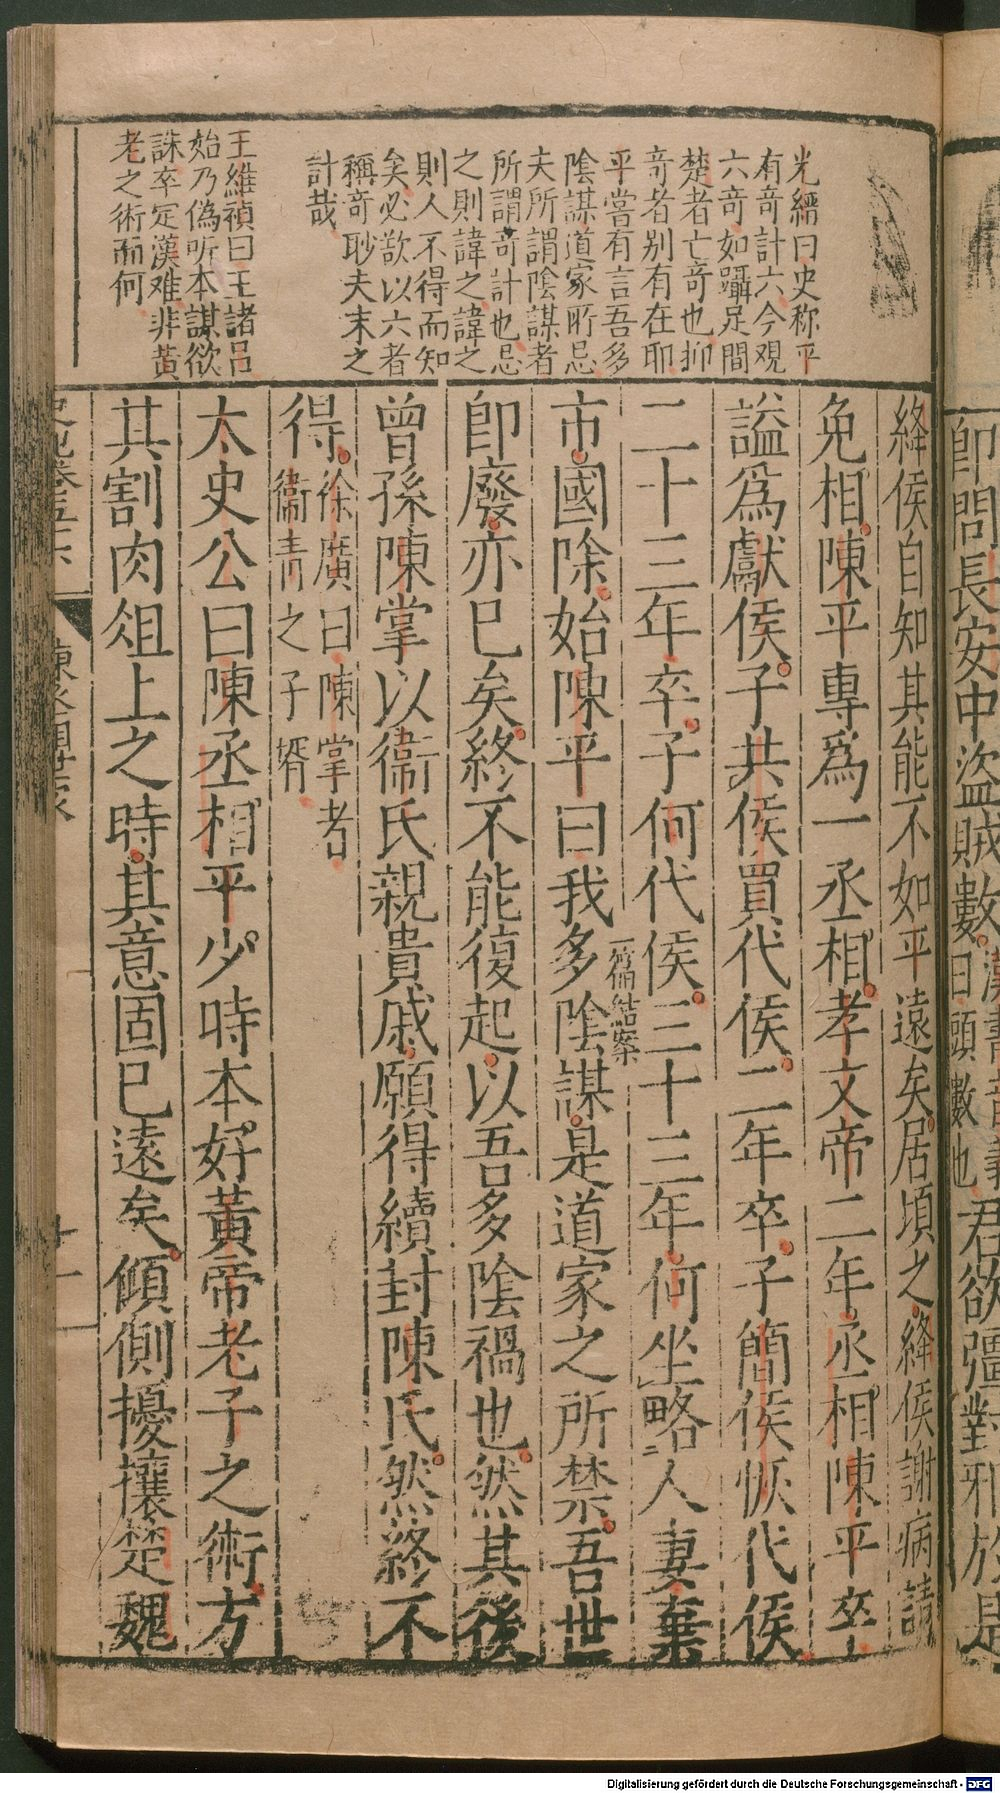 即問長安中盜賊數
君欲彊對邪於是
光縉曰史称平
有竒計六今观
六竒如躡足間
楚者亡竒也抑
竒者别有在耶
平嘗有言吾多
陰謀道家所忌
夫所謂陰謀者
所謂竒計也忌
之則諱之諱之
則人不得而知
矣必欲以六者
稱竒耿夫末之
計哉
王維禎曰王諸呂
始乃偽听本謀欲
誅卒定漢难非黃
老之術而何
絳侯自知其能不如平遠矣居頃之絳侯謝病請
免相陳平專爲一丞相孝文帝二年丞相陳平卒
謚爲獻侯子共侯買代侯二年卒子簡侯恢代侯
二十三年卒子何代侯三十三年何坐略人妻棄
一篇結案
市國除始陳平曰我多陰謀是道家之所禁吾世
即廢亦已矣終不能復起以吾多陰禍也然其後
曾孫陳掌以衞氏親貴戚願得續封陳氏然終不
得徐廣曰陳掌者
衞青之子壻
太史公曰陳丞相平少時本好黃帝老子之術方
其割肉俎上之時其意固已遠矣傾側擾攘楚魏
陳丞相世家
十一
Digitalisierung gefördert durch die Deutsche Forschungsgemeinschaft - DFG